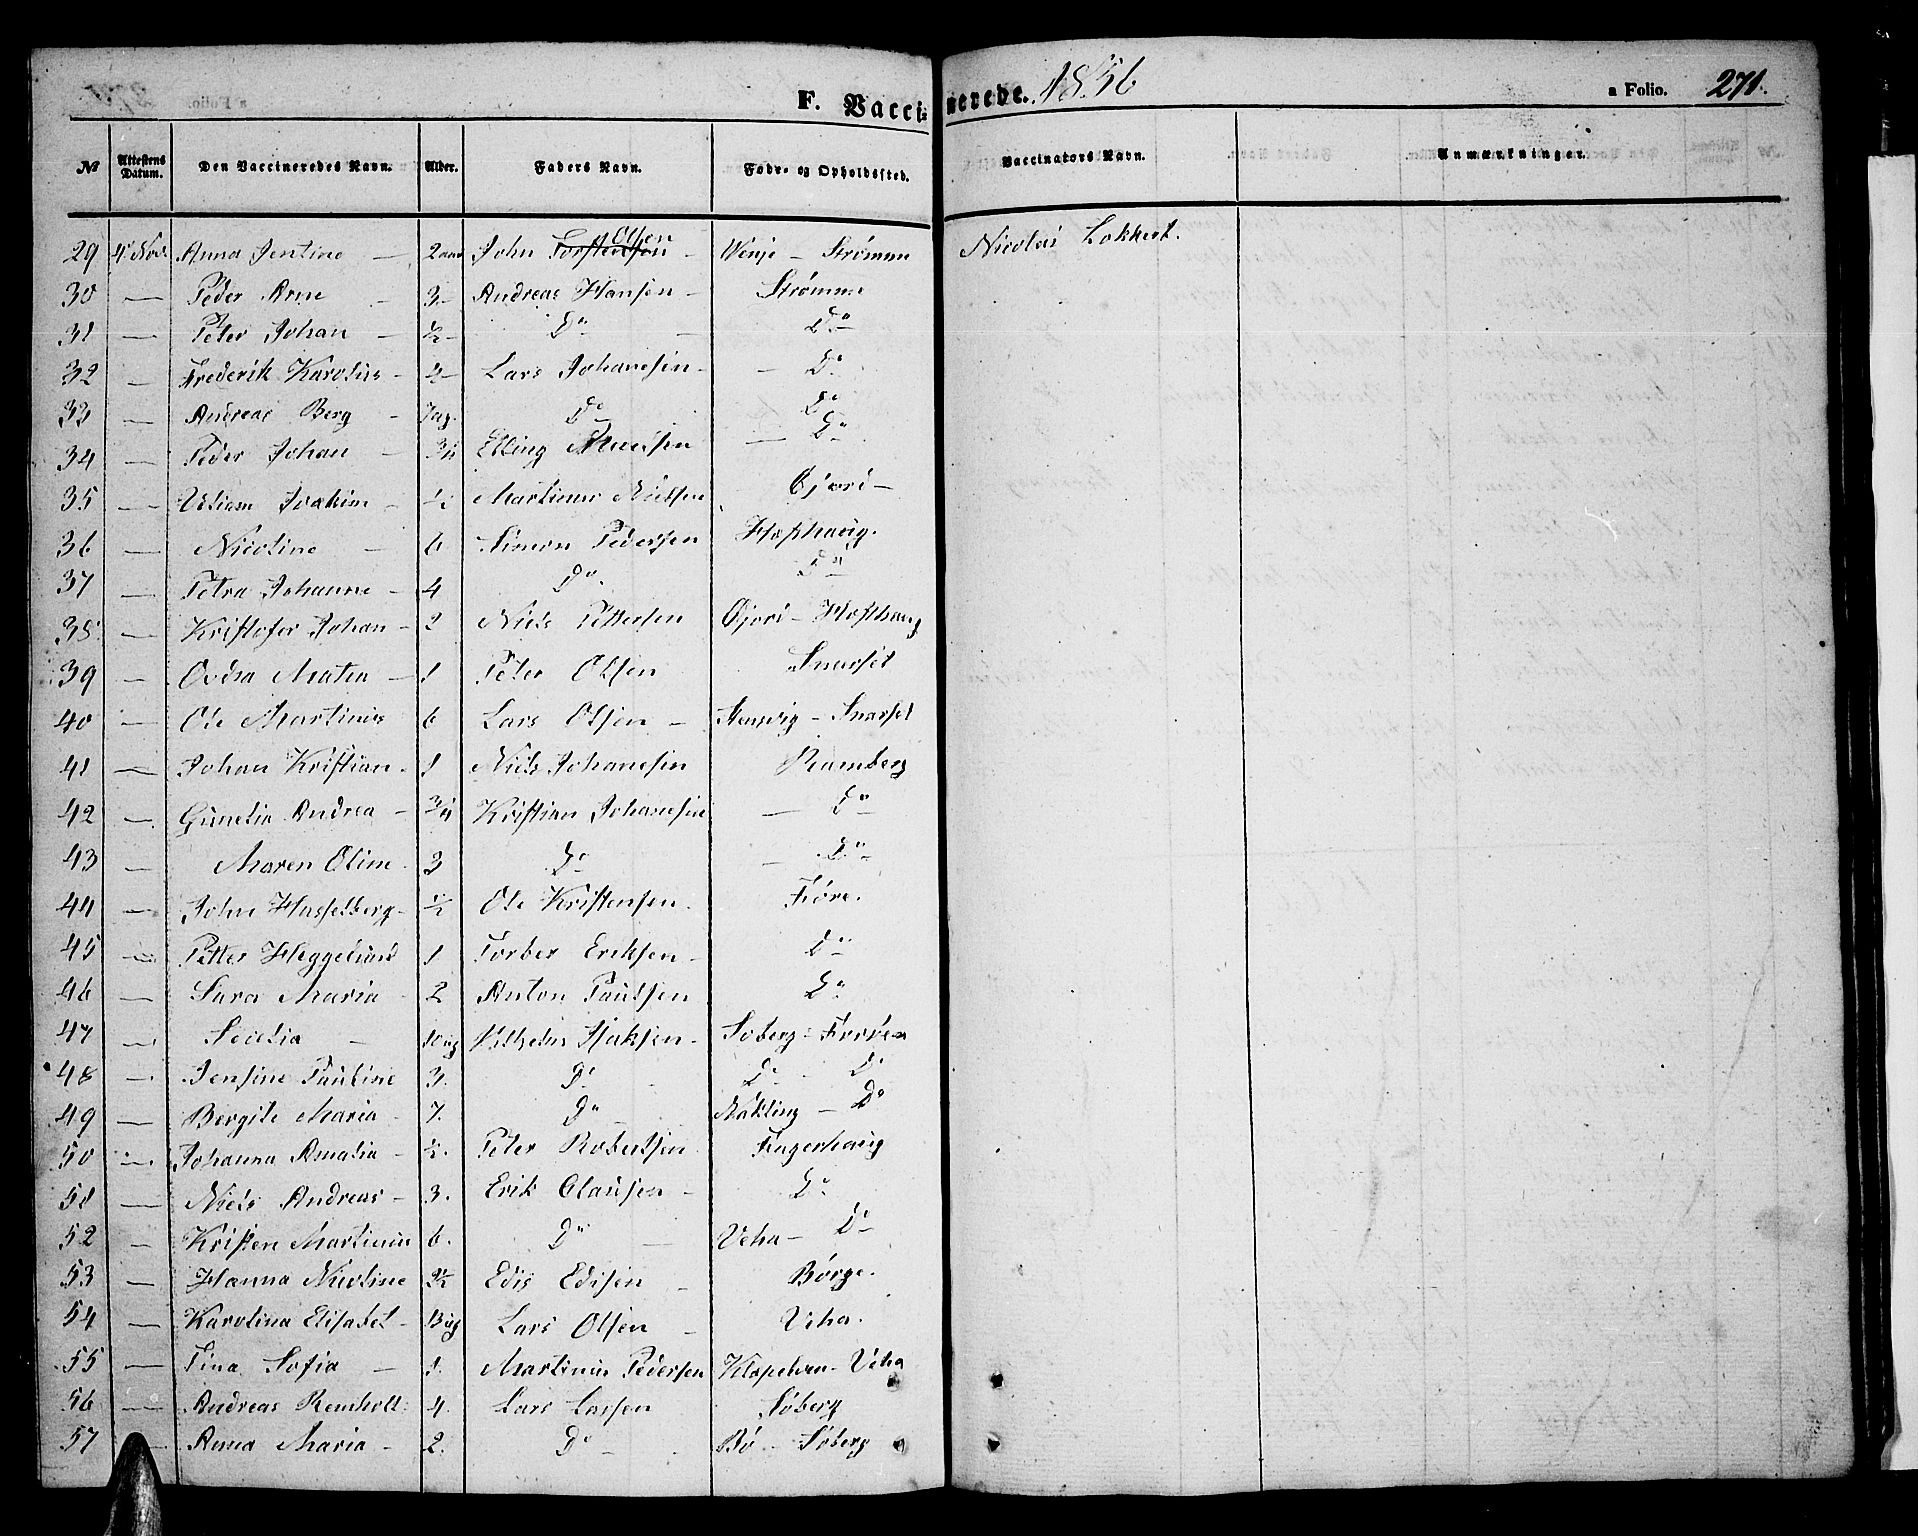 F. Vaccinerede. 1856 a Folio. 271.
No Attestens Datum. Den Vaccineredes Navn. Alder. Faders Navn. Føde- og Opholdssted. Vaccinators Navn. Anmærkninger.
29 4 Nov. Anna Jentine — 2 aar John Torstensen Olsen — Wenje — Strømme Nicolai Lokkert.
30 — Peder Arne — 3 — Andreas Hansen — Strømme
31 — Peter Johan — ½ — Do — Do
32 — Frederik Karolius — ½ — Lars Johanesen — — Do
33 — Andreas Berg — Do Do
34 — Peder Johan — 3/4 Elling — Do
35 — Viliam Joakim — ½ Martinus Nielsen Gjæri —
36 — Nicoline — 6 Simon Pedersen Hofhaug.
37 — Petra Johanne — 4 Do Do
38. — Kristofer Johan — 2 Niels Pettersen Gjæri — Hofhaug
39 — Ovdia Matea — 1 Peter Olsen Snarset
40 — Ole Martinus 6 Lars Olsen — Steupvig — Snarset
41 — Johan Kristian. 1 Niels Johanesen Ramberg
42 — Gunelia Andrea — 3/4 Kristian Johanesen — Do
43 — Maren Oline. 3 Do — Do
44 — John Hasselberg — ½ Ole Kristensen. Føre.
45 — Petter Heggelund 1 Torber Eriksen — Do
46 — Sara Maria 2 Anton Paulsen Do
47 — Secelia — 10 ug Vilhelm Isaksen — Søberg —
48 — Jensine Pauline 3. Do Do Do
49 — Bergite Maria — 7. Do — — Do
50 — Johanna Amalia — ½. Peter Robertsen Fagerhaug
51 — Niels Andreas — 3. Erik Clausen — Do
52 — Kristen Martinus 6. Do — Veha — Do
53 — Hanna Nicoline 3½ Edis Edisen — Børge.
54 — Karolina Elisabet — 13 ug Lars Olsen — Veha.
55 — Tina Sofia — 1. Martinus Pedersen Klapelven — Veha
56 — Andreas Remholt 4. Lars Larsen Søberg
57 — Anna Maria — 2. Do — Bø — Søberg